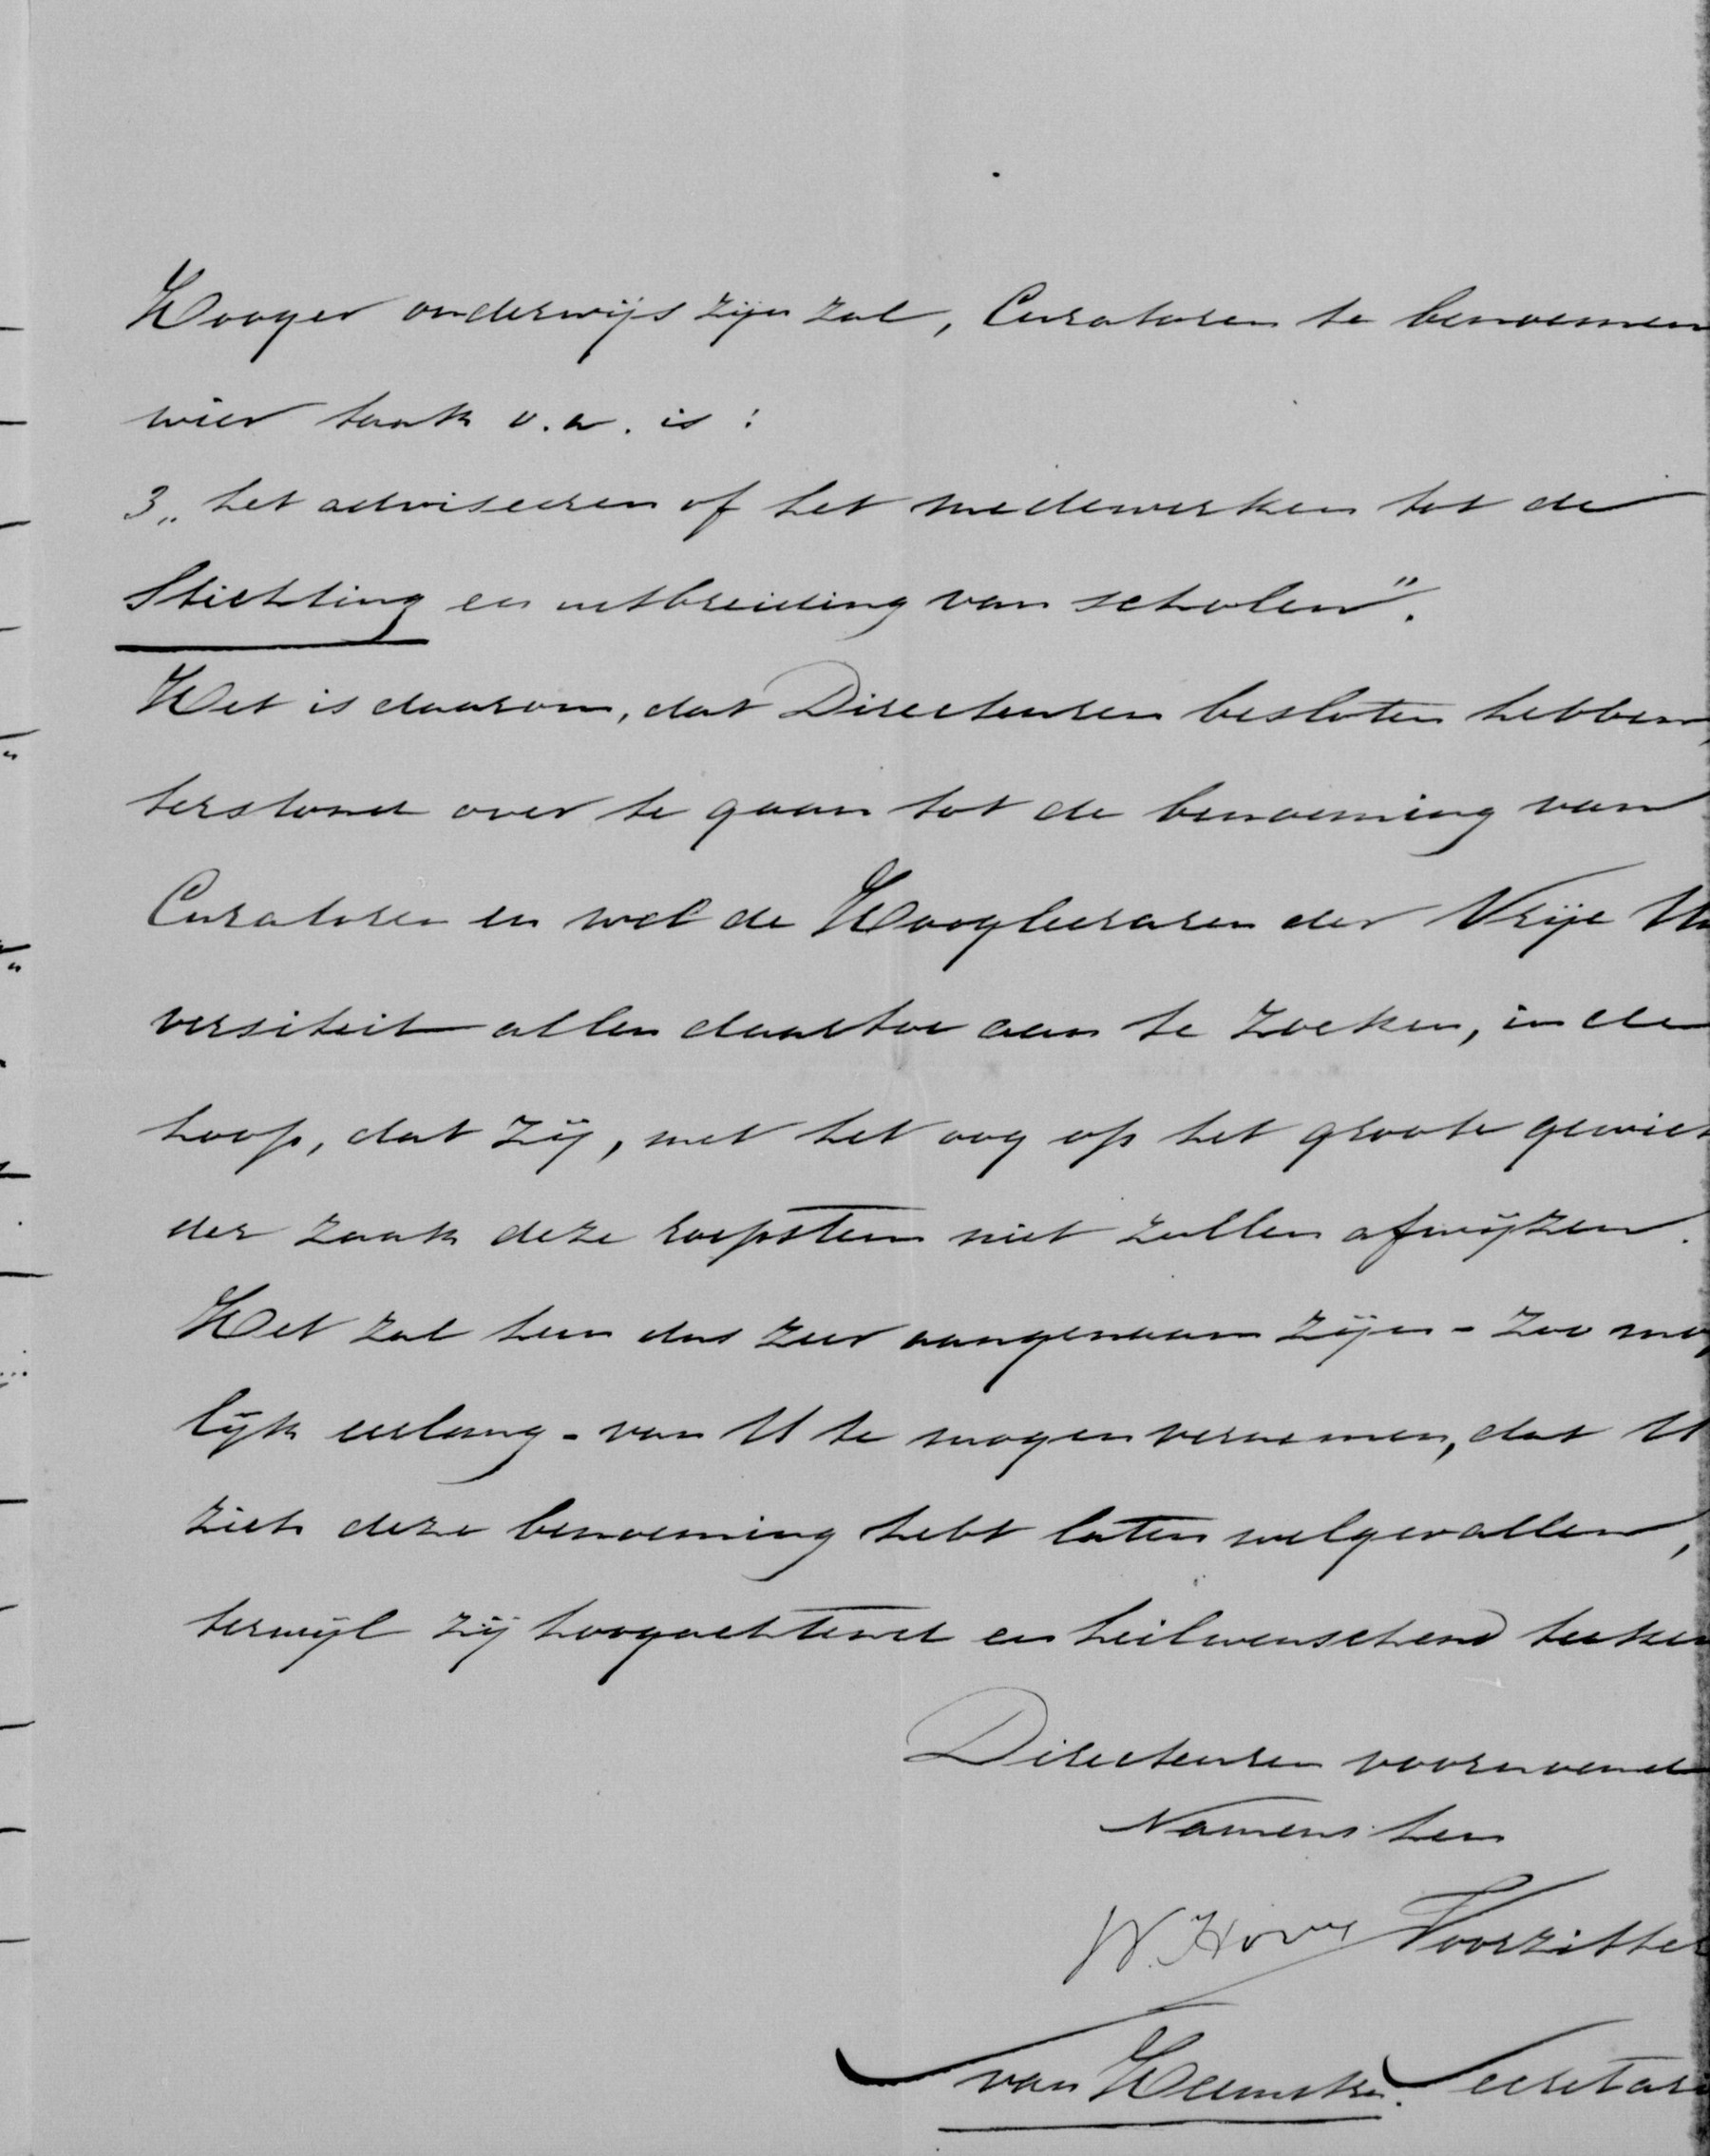 Hooger onderwijs zijn zal, Curatoren te benoemen
wier taak o.a. is :
3„ het adviseeren of het medewerken tot de
Stichting en uitbreiding van scholen".
Het is daarom, dat Directeuren besloten hebben,
terstond over te gaan tot de benoeming van
Curatoren en wel de Hoogleeraren der Vrije Un
versiteit allen daartoe aan te zoeken, in de
hoop, dat zij, met het oog op het groote gewich
der zaak deze roepstem niet zullen afwijzen.
Het zal hun dus zeer aangenaam zijn - zoo mog
lijk eerlang - van U te mogen vernemen, dat U
zich deze benoeming hebt laten welgevallen,
terwijl zij hoogachtend en heilwenschend teeken
Directeuren voornoemd
Namens hen
W. Hovy Voorzitter
van Heemstra. Secretari